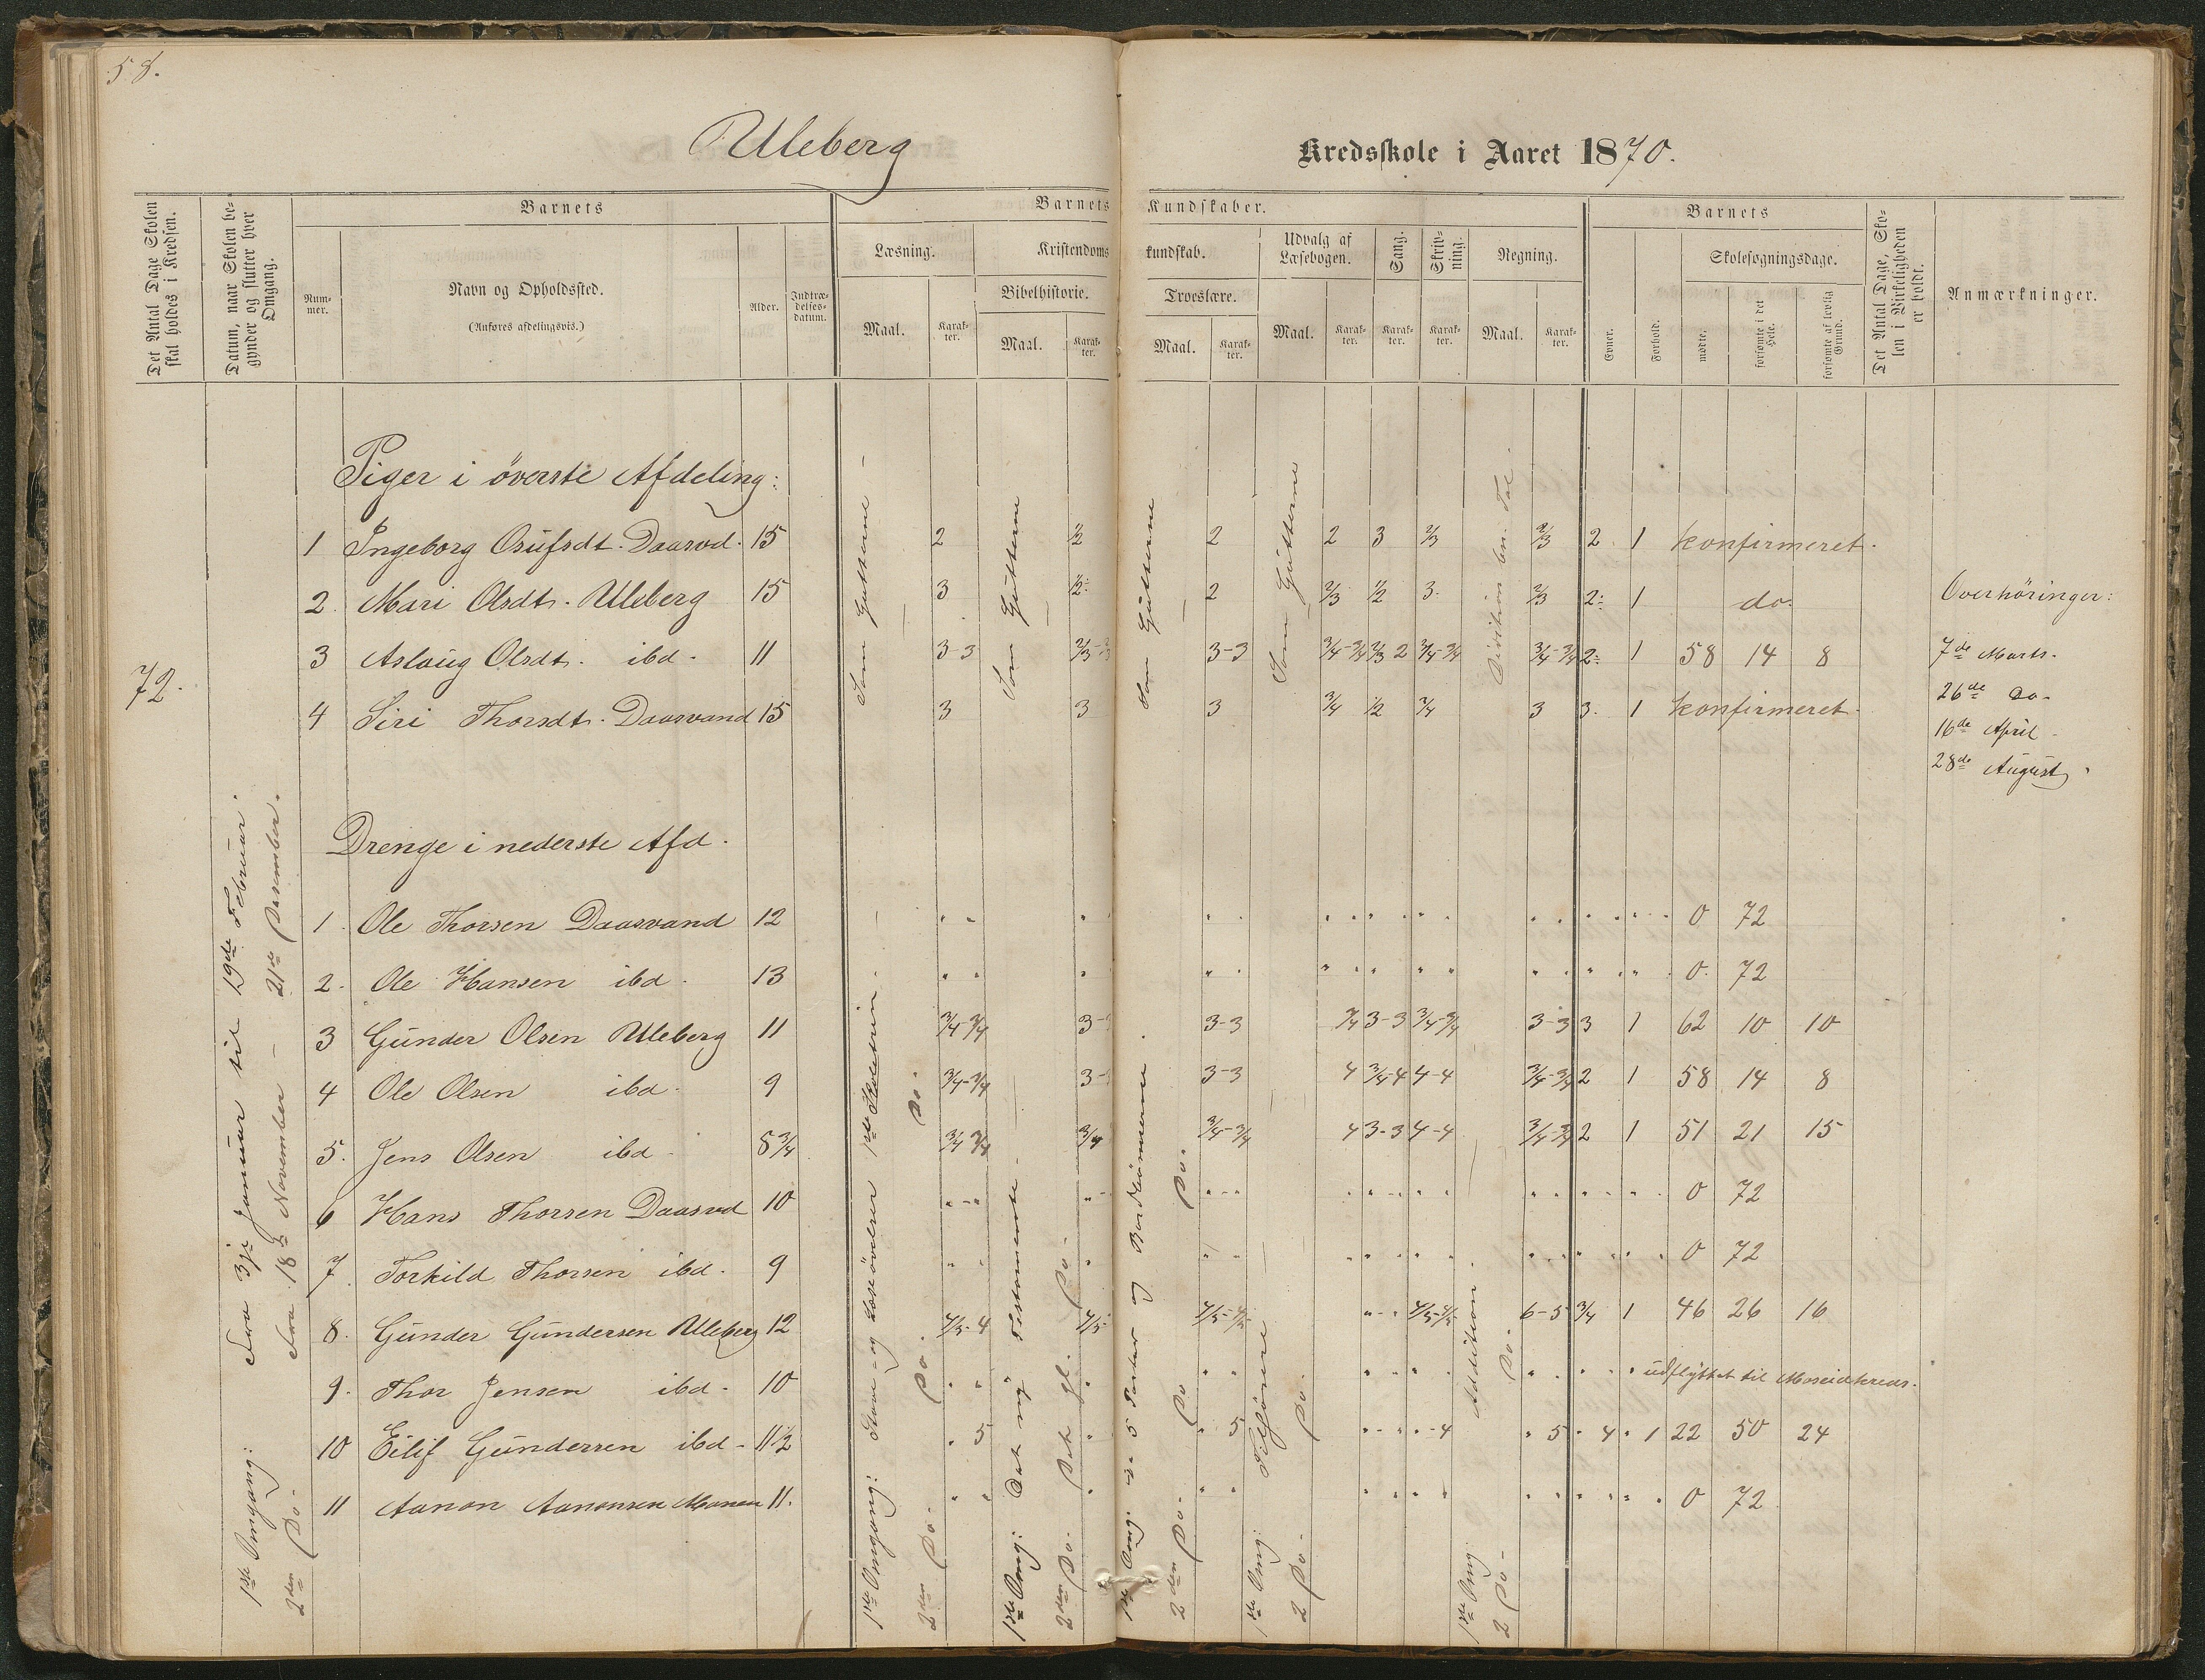 58.
Uleberg
Kredsskole i Aaret 1870.
Det Antal Dage Skolen skal holdes i Kredsen.
Datum, naar Skolen begynder og slutter hver Omgang.
Barnets
Nummer.
Navn og Opholdssted.
(Anføres afdelingsvis.)
Alder.
Indtrædelsesdatum.
Barnets Kundskaber.
Læsning.
Maal.
Karakter.
Kristendomskundskab.
Bibelhistorie.
Maal.
Karakter.
Troeslære.
Maal.
Karakter.
Udvalg af Læsebogen.
Maal.
Karakter.
Sang.
Karakter.
Skrivning.
Karakter.
Regning.
Maal.
Karakter.
Barnets
Evner.
Forhold.
Skolesøgningsdage.
mødte.
forsømte i det Hele.
forsømte af lovlig Grund.
Det Antal Dage, Skolen i Virkeligheden er holdt.
Anmærkninger.
72.
1ste Omgang: Fra 3je Januar til 19de Februar.
2den Do- Fra 18de November - 21de Desember.
Piger i överste Afdeling:
Som Gutterne
Som Gutterne
Som Gutterne
Som Gutterne
1 Ingeborg Osufsdt. Daasvd. 15 2 1/2 2 2 3 2/3 2/3 2 1 konfirmeret.
2. Mari Olsdt. Uleberg 15 3 1/2 2 2/3 1/2 3. 2/3 2 1 do.
3 Aslaug Olsdt. ibd. 11 3-3 2/3 3-3 3/4-3/4 2/3 2 3/4-3/4 3/4-3/4 2 1 58 14 8
4 Siri Thorsdt. Daasvand 15 3 3 3 3/4 1/2 3/4 3 3. 1 konfirmeret.
Overhöringer:
7de Marts.
26de do-
16de April
28de August.
Drenge i nederste Afd.
1. Ole Thorsen Daasvand 12 0 72
2. Ole Hansen ibd. 13 0. 72
3 Gunder Olsen Uleberg 11 3/4-3/4 3- 3-3 3/4 3-3 3/4-3/4 3-3 3 1 62 10 10
4 Ole Olsen ibd. 9 3/4-3/4 3- 3-3 4 3/4-4 4-4 3/4-3/4 2 1 58 14 8
5. Jens Olsen ibd. 8 3/4 3/4 3/4 3/4 3/4-3/4 4 3-3 4-4 3/4-3/4 2 1 51 21 15
6 Hans Thorsen Daasvd 10 0 72
7. Torkild Thorsen ibd. 9 0 72
8. Gunder Gundersen Uleberg 12 4/5-4 4/5 4/5-4/5 4/5-4/5 6-5 3/4 1 46 26 16
9. Thor Jensen ibd. 10 udflyttet til Moseidkreds.
10 Eilif Gundersen ibd. 11 1/2 5 5 4 5 4 1 22 50 24
11 Aanon Aanonsen Monen 11. 0 72
1ste Omgang: Stave- og Læseövelser 1ste Skoletrin.
2den Do- Do. Do.
1ste Omg: Det ny Testamente.
2den Do. Det gl. Do.
1ste Omg:
2den Do. Do Do.
1ste Omg:
2 Do- Do.
1ste Omg. Addition.
2 Do- Do.